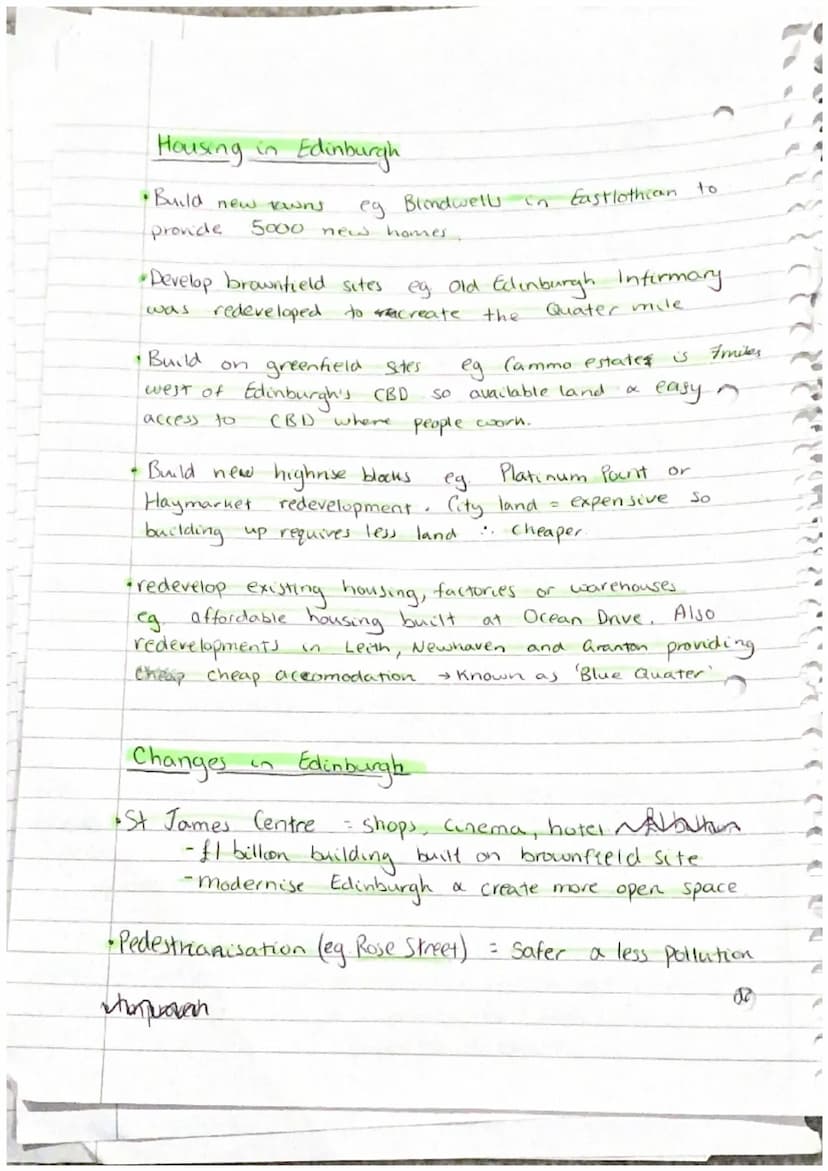 Housing in Edinburgh
• Build new towns eg Blindwells in Eastlothian to
provide 5000 new homes.
• Develop brownfield sites eg Old Edinburgh Infirmary
was redeveloped to create the Quater mile
• Build on greenfield sites eg Cammo estates is 7miles
west of Edinburgh's CBD so available land & easy
access to CBD where people work.
• Build new highrise blocks eg Platinum Point or
Haymarket redevelopment. City land = expensive so
building up requires less land ∴ cheaper
• redevelop existing housing, factories or warehouses
eg affordable housing built at Ocean Drive. Also
redevelopments in Leith, Newhaven and Granton providing
cheap cheap accomodation → known as 'Blue Quater'
Changes in Edinburgh
• St James Centre = shops, cinema, hotel
- £1 billion building built on brownfield site
- modernise Edinburgh & create more open space
• Pedestrianisation (eg Rose Street) = safer & less pollution